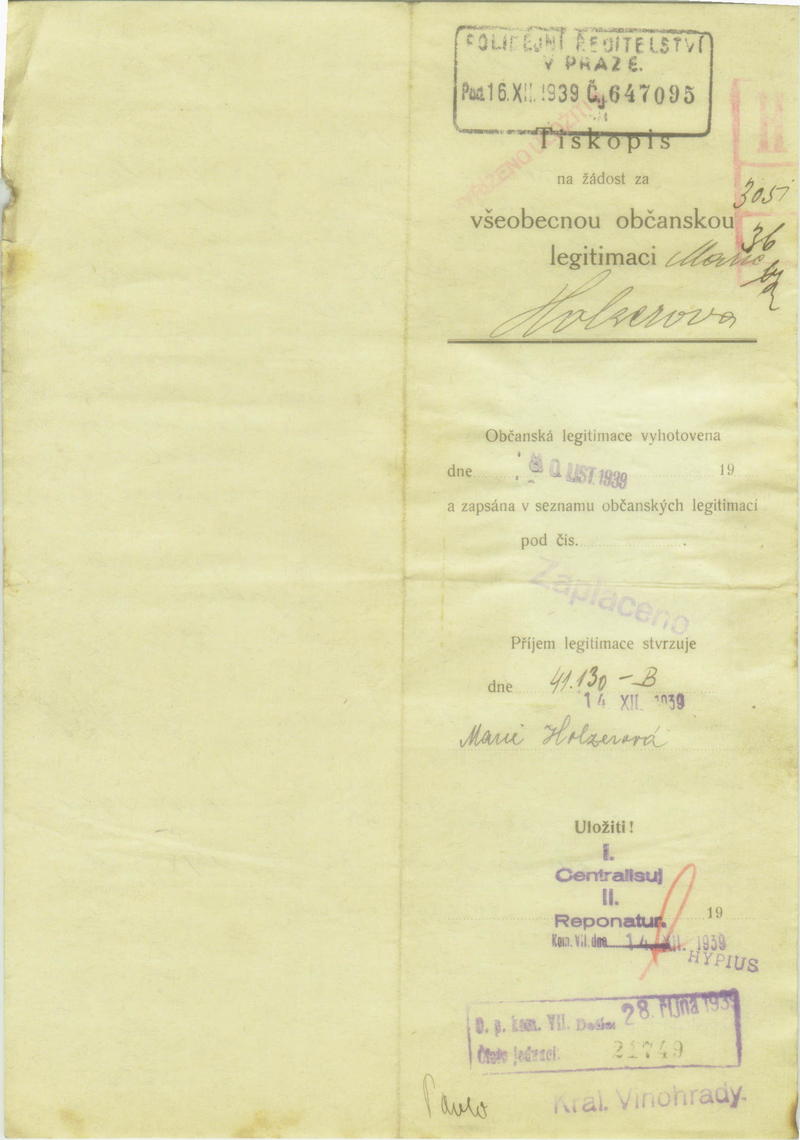 POLICEJNÍ ŘEDITELSTVÍ
V PRAZE.
Pod. 16.XII.1939 Čj 647095
H
Tiskopis
na žádost za
3051
všeobecnou občanskou
36
legitimaci Marie
Holzerova
Občanská legitimace vyhotovena
dne LIST.1939 19
a zapsána v seznamu občanských legitimací
pod čis.
Zaplaceno
Příjem legitimace stvrzuje
dne 41.130 – B
14 XII. 1939
Marie Holzerová
Uložiti!
I.
Centralisuj
II.
Reponatur. 19
Kom. VII. dne 14. XII. 1939
HYPIUS
O. p. kom. VII. Došlo: 28. října 1939
Číslo jednací: 21749
Král. Vinohrady.